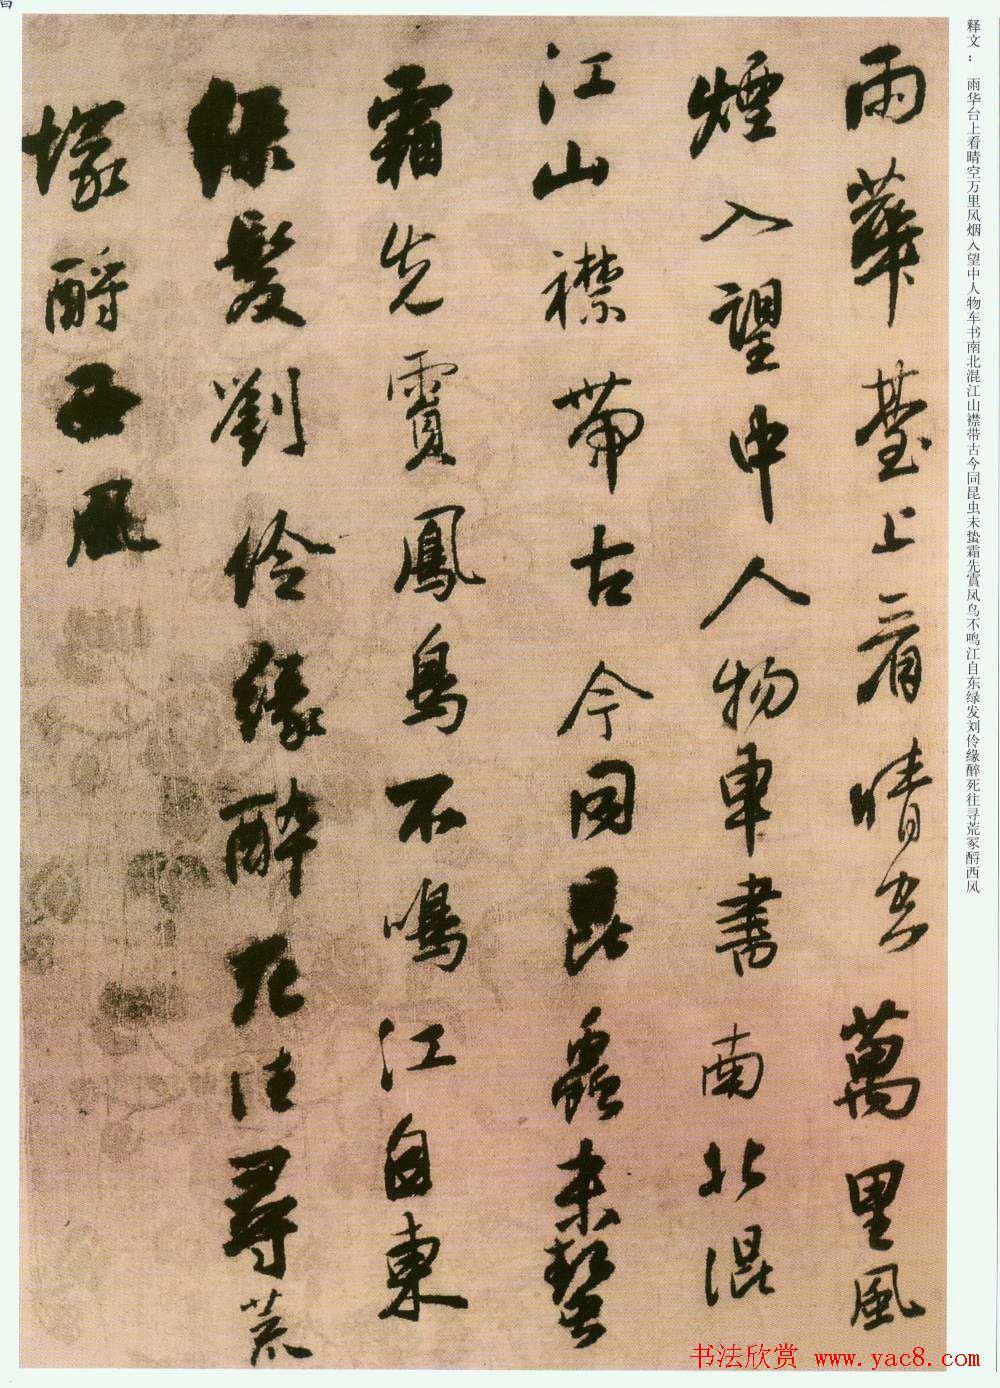 释文： 雨华台上看晴空万里风烟入望中人物车书南北混江山襟带古今同昆虫未蛰霜先賔凤鸟不鸣江自东绿发刘伶缘醉死往寻荒冢酹西风
雨華臺上看晴空萬里風
煙入望中人物車書南北混
江山襟帶古今同昆蟲未蟄
霜先賓鳳鳥不鳴江自東
緑髮劉伶緣醉死往尋荒
塚酹西風
书法欣赏 www.yac8.com